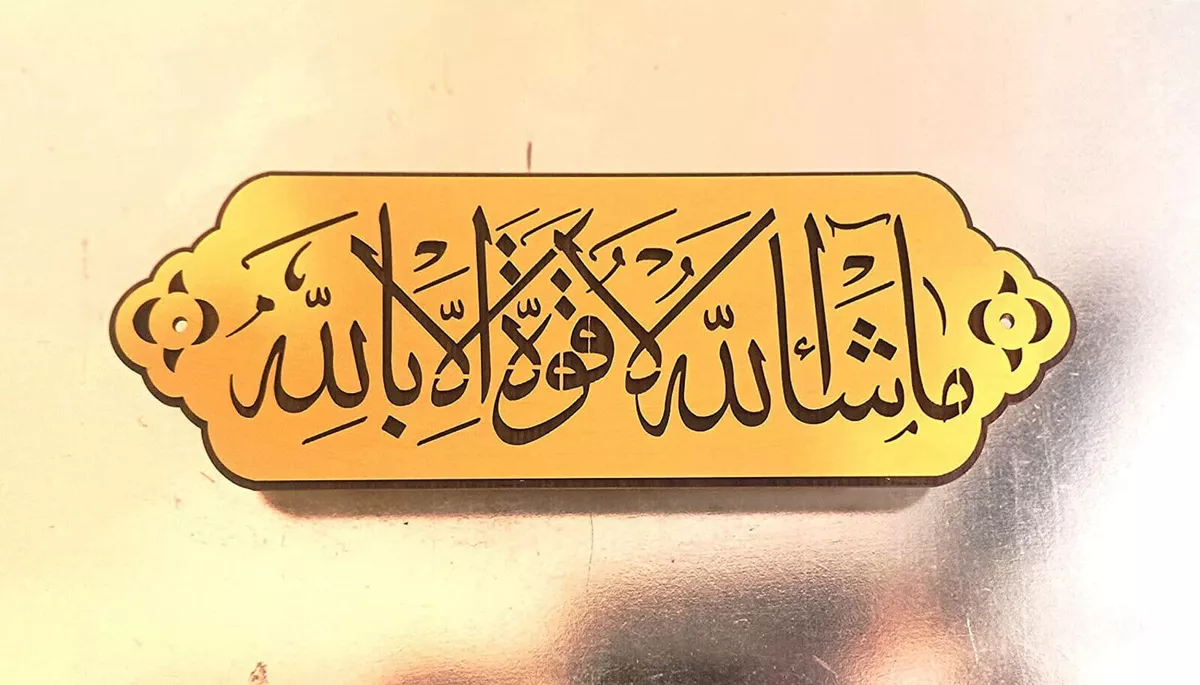 ما شأ الله لا قوة الا بالله